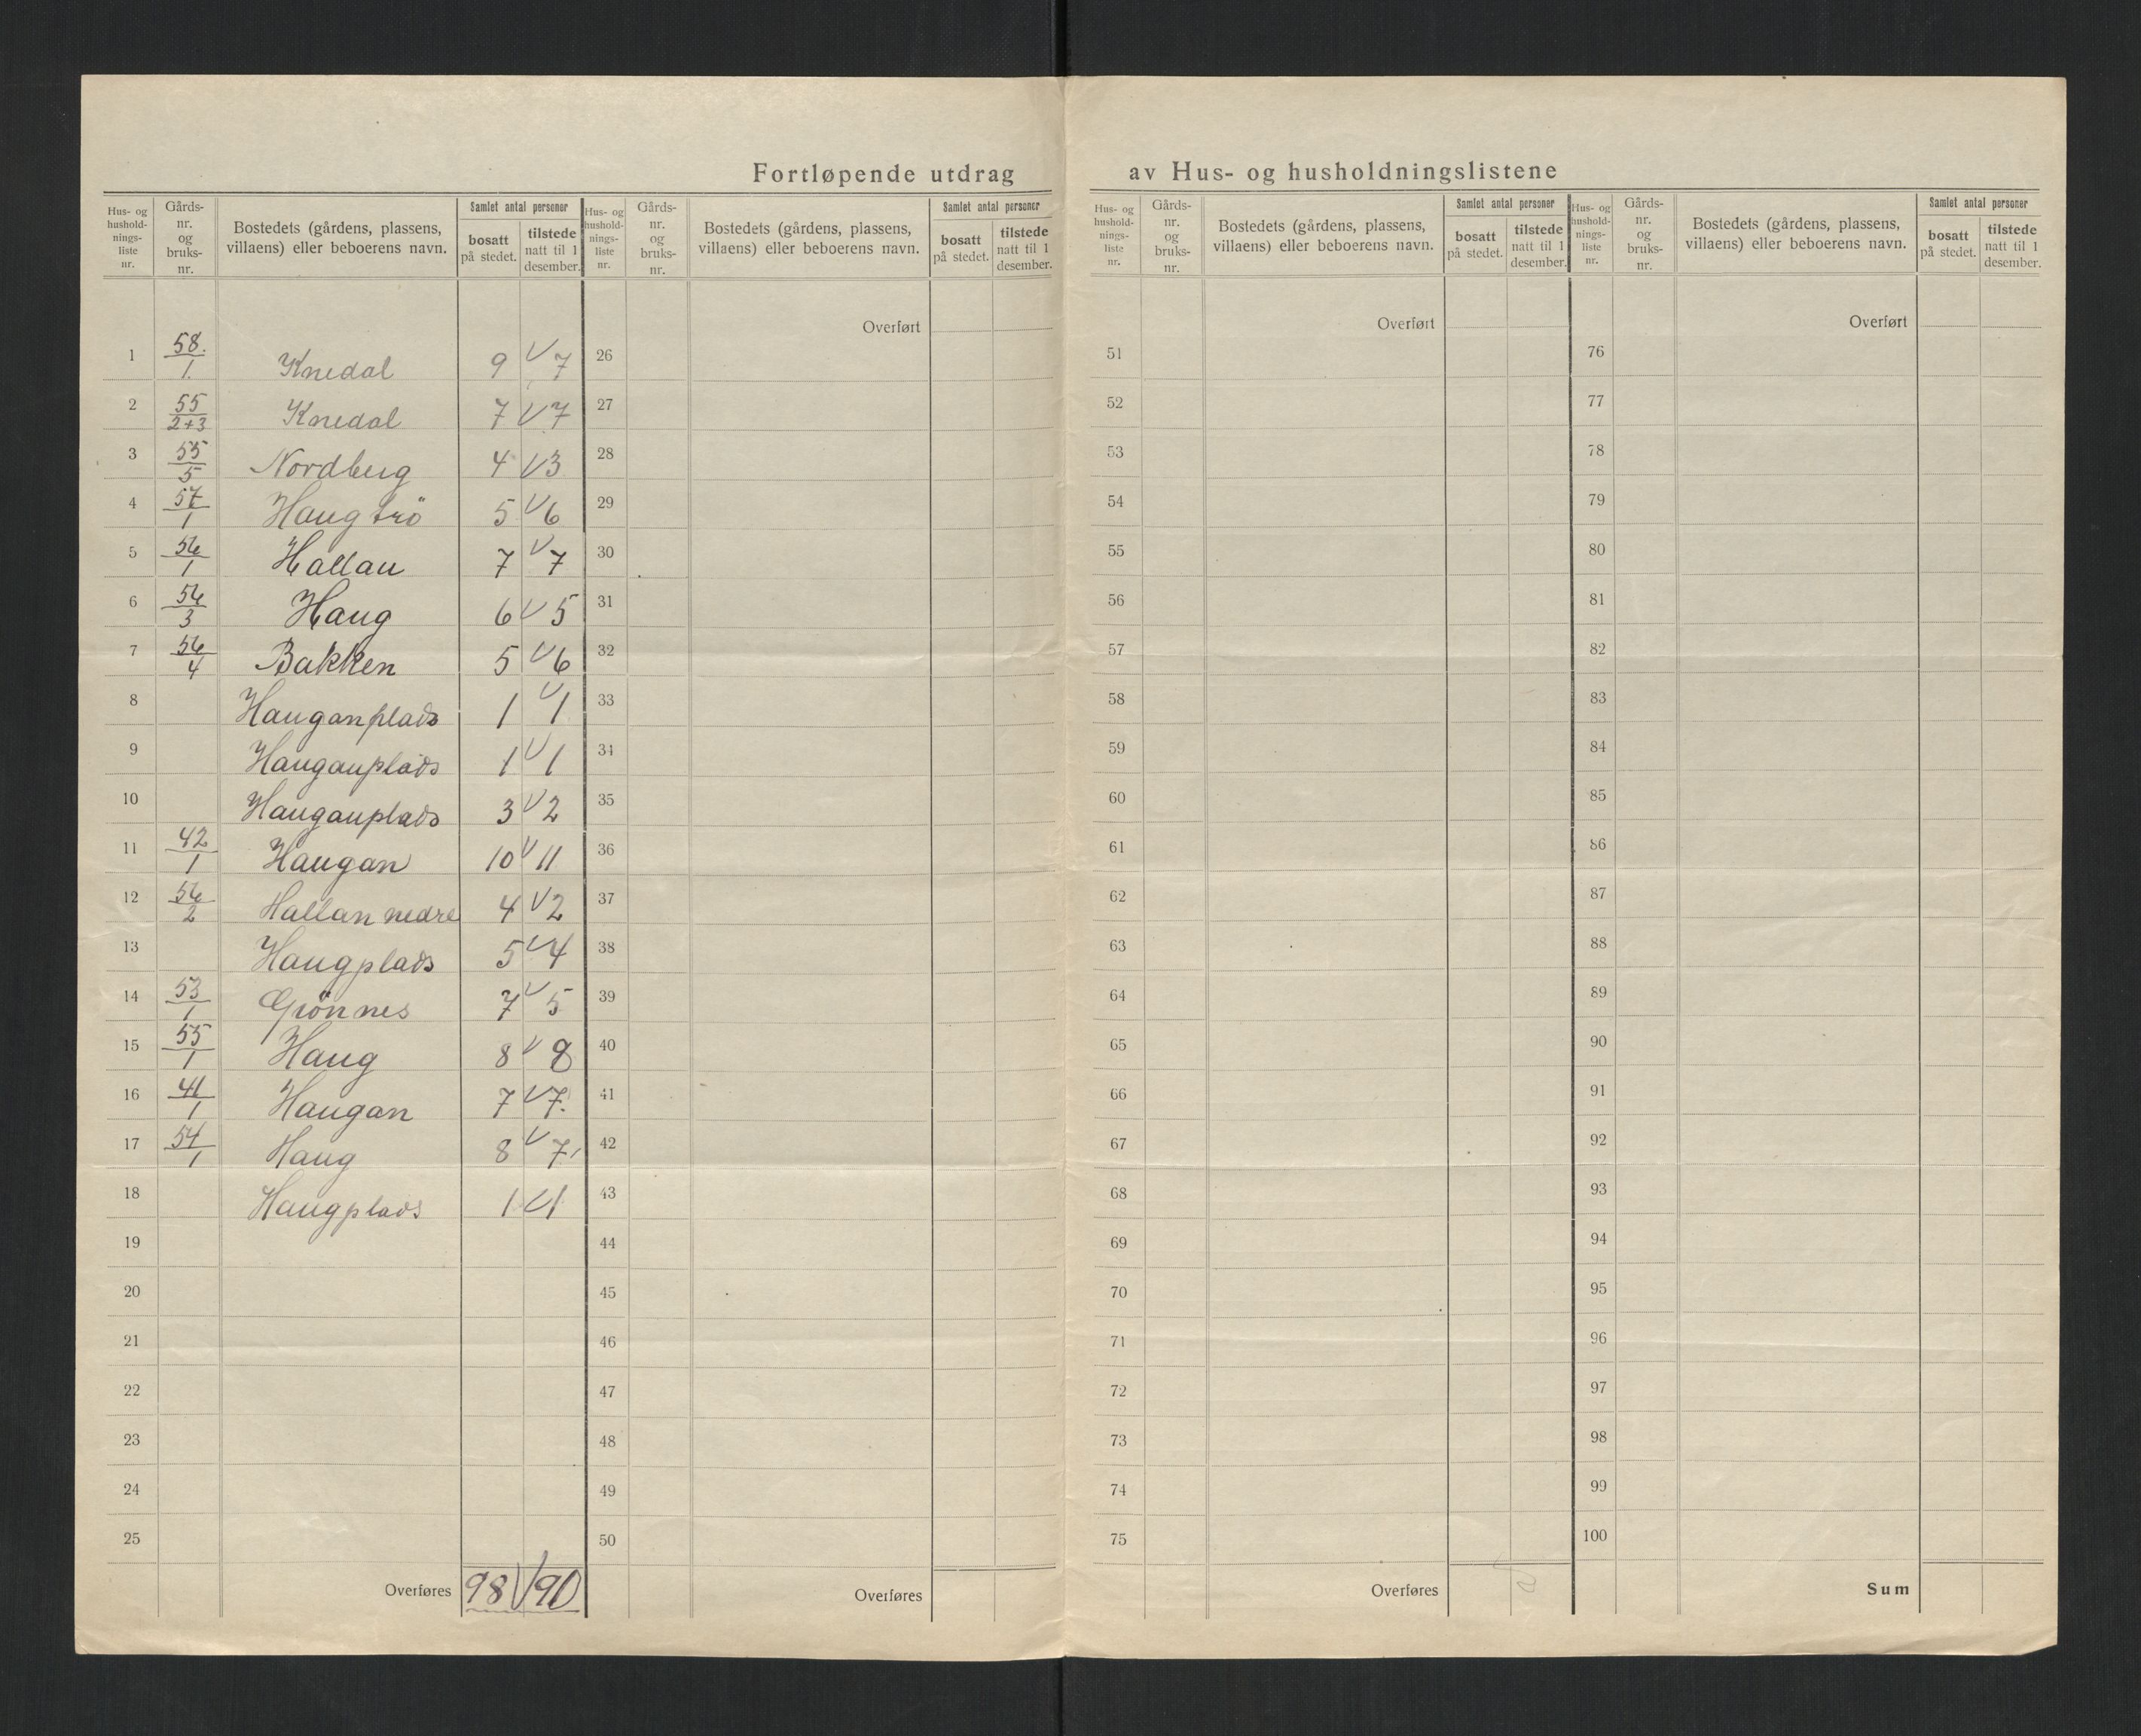 Fortløpende utdrag av Hus- og husholdningslistene
Hus- og husholdnings-liste nr. | Gårds-nr. og bruks-nr. | Bostedets (gårdens, plassens, villaens) eller beboerens navn. | Samlet antal personer | bosatt på stedet. | tilstede natt til 1 desember.
Hus- og husholdnings-liste nr. | Gårds-nr. og bruks-nr. | Bostedets (gårdens, plassens, villaens) eller beboerens navn. | Samlet antal personer | bosatt på stedet. | tilstede natt til 1 desember.
Hus- og husholdnings-liste nr. | Gårds-nr. og bruks-nr. | Bostedets (gårdens, plassens, villaens) eller beboerens navn. | Samlet antal personer | bosatt på stedet. | tilstede natt til 1 desember.
Hus- og husholdnings-liste nr. | Gårds-nr. og bruks-nr. | Bostedets (gårdens, plassens, villaens) eller beboerens navn. | Samlet antal personer | bosatt på stedet. | tilstede natt til 1 desember.
Overført Overført Overført
1 58./1. Knedal 9 V 7 26 51 76
2 55/2+3 Knedal 7 V 7 27 52 77
3 55/5 Nordberg 4 V 3 28 53 78
4 57/1 Haugtrö 5 V 6 29 54 79
5 56/1 Hallan 7 V 7 30 55 80
6 56/3 Haug 6 V 5 31 56 81
7 56/4 Bakken 5 V 6 32 57 82
8 Hauganplads 1 V 1 33 58 83
9 Hauganplads 1 V 1 34 59 84
10 Hauganplads 3 V 2 35 60 85
11 42/1 Haugan 10 V 11 36 61 86
12 56/2 Hallan nedre 4 V 2 37 62 87
13 Haugplads 5 V 4 38 63 88
14 53/1 Grönnes 7 V 5 39 64 89
15 55/1 Haug 8 V 8 40 65 90
16 41/1 Haugan 7 V 7. 41 66 91
17 54/1 Haug 8 V 7 42 67 92
18 Haugplads 1 V 1 43 68 93
19 44 69 94
20 45 70 95
21 46 71 96
22 47 72 97
23 48 73 98
24 49 74 99
25 50 75 100
Overføres 98 V 90 Overføres Overføres Sum